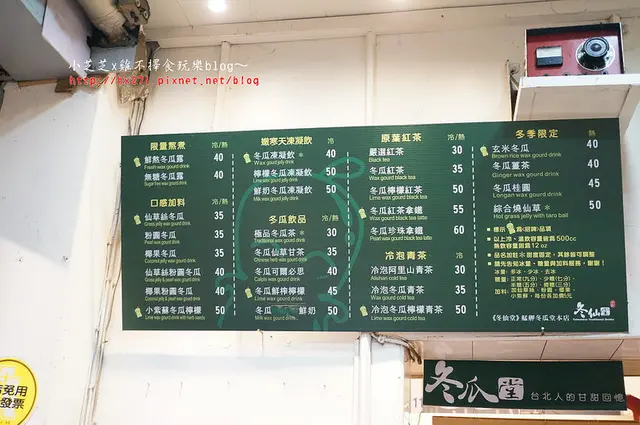 小芝芝x雞不擇食玩樂blog~
限量熬煮 冷/熱
鮮熬冬瓜露 40
Fresh wax gourd jelly drink
無糖冬瓜露 40
Sugar free wax gourd drink
口感加料 冷/熱
仙草絲冬瓜 35
粉圓冬瓜 35
Pearl wax gourd drink
椰果冬瓜 35
Coconut jelly wax gourd drink
仙草絲粉圓冬瓜 40
椰果粉圓冬瓜 40
小紫蘇冬瓜檸檬 50
Lime wax gourd drink with herb seeds
纖寒天凍凝飲 冷
冬瓜凍凝飲 40
Wax gourd jelly drink
檸檬冬瓜凍凝飲 50
Lime wax gourd jelly drink
鮮奶冬瓜凍凝飲 50
Milk wax gourd jelly drink
冬瓜飲品 冷/熱
極品冬瓜茶 30
Traditional wax gourd drink
冬瓜仙草甘茶 35
Chinese herb wax gourd drink
冬瓜可爾必思 40
Calpis wax gourd drink
冬瓜鮮榨檸檬 45
Lime wax gourd drink
冬瓜 鮮奶 50
Milk wax gourd drink
原葉紅茶 冷/熱
嚴選紅茶 30
Black tea
冬瓜紅茶 35
Wax gourd black tea
冬瓜檸檬紅茶 50
Lime wax gourd black tea
冬瓜紅茶拿鐵 55
Wax gourd black tea latte
冬瓜珍珠拿鐵 60
Pearl wax gourd black tea latte
冷泡青茶 冷
冷泡阿里山青茶 30
Alishan cold tea
冷泡冬瓜青茶 35
Wax gourd cold tea
冷泡冬瓜檸檬青茶 50
Lime wax gourd cold tea
冬季限定 熱
玄米冬瓜 40
Brown rice wax gourd drink
冬瓜薑茶 40
Ginger wax gourd drink
冬瓜桂圓 45
Longan wax gourd drink
綜合燒仙草 50
Hot grass jelly with taro ball
以上冷、溫飲容量皆為500cc
熱飲容量皆為12oz
《冬仙堂》艋舺冬瓜堂本店
冬仙堂
冬瓜堂 台北人的甘甜回憶
免用
發票